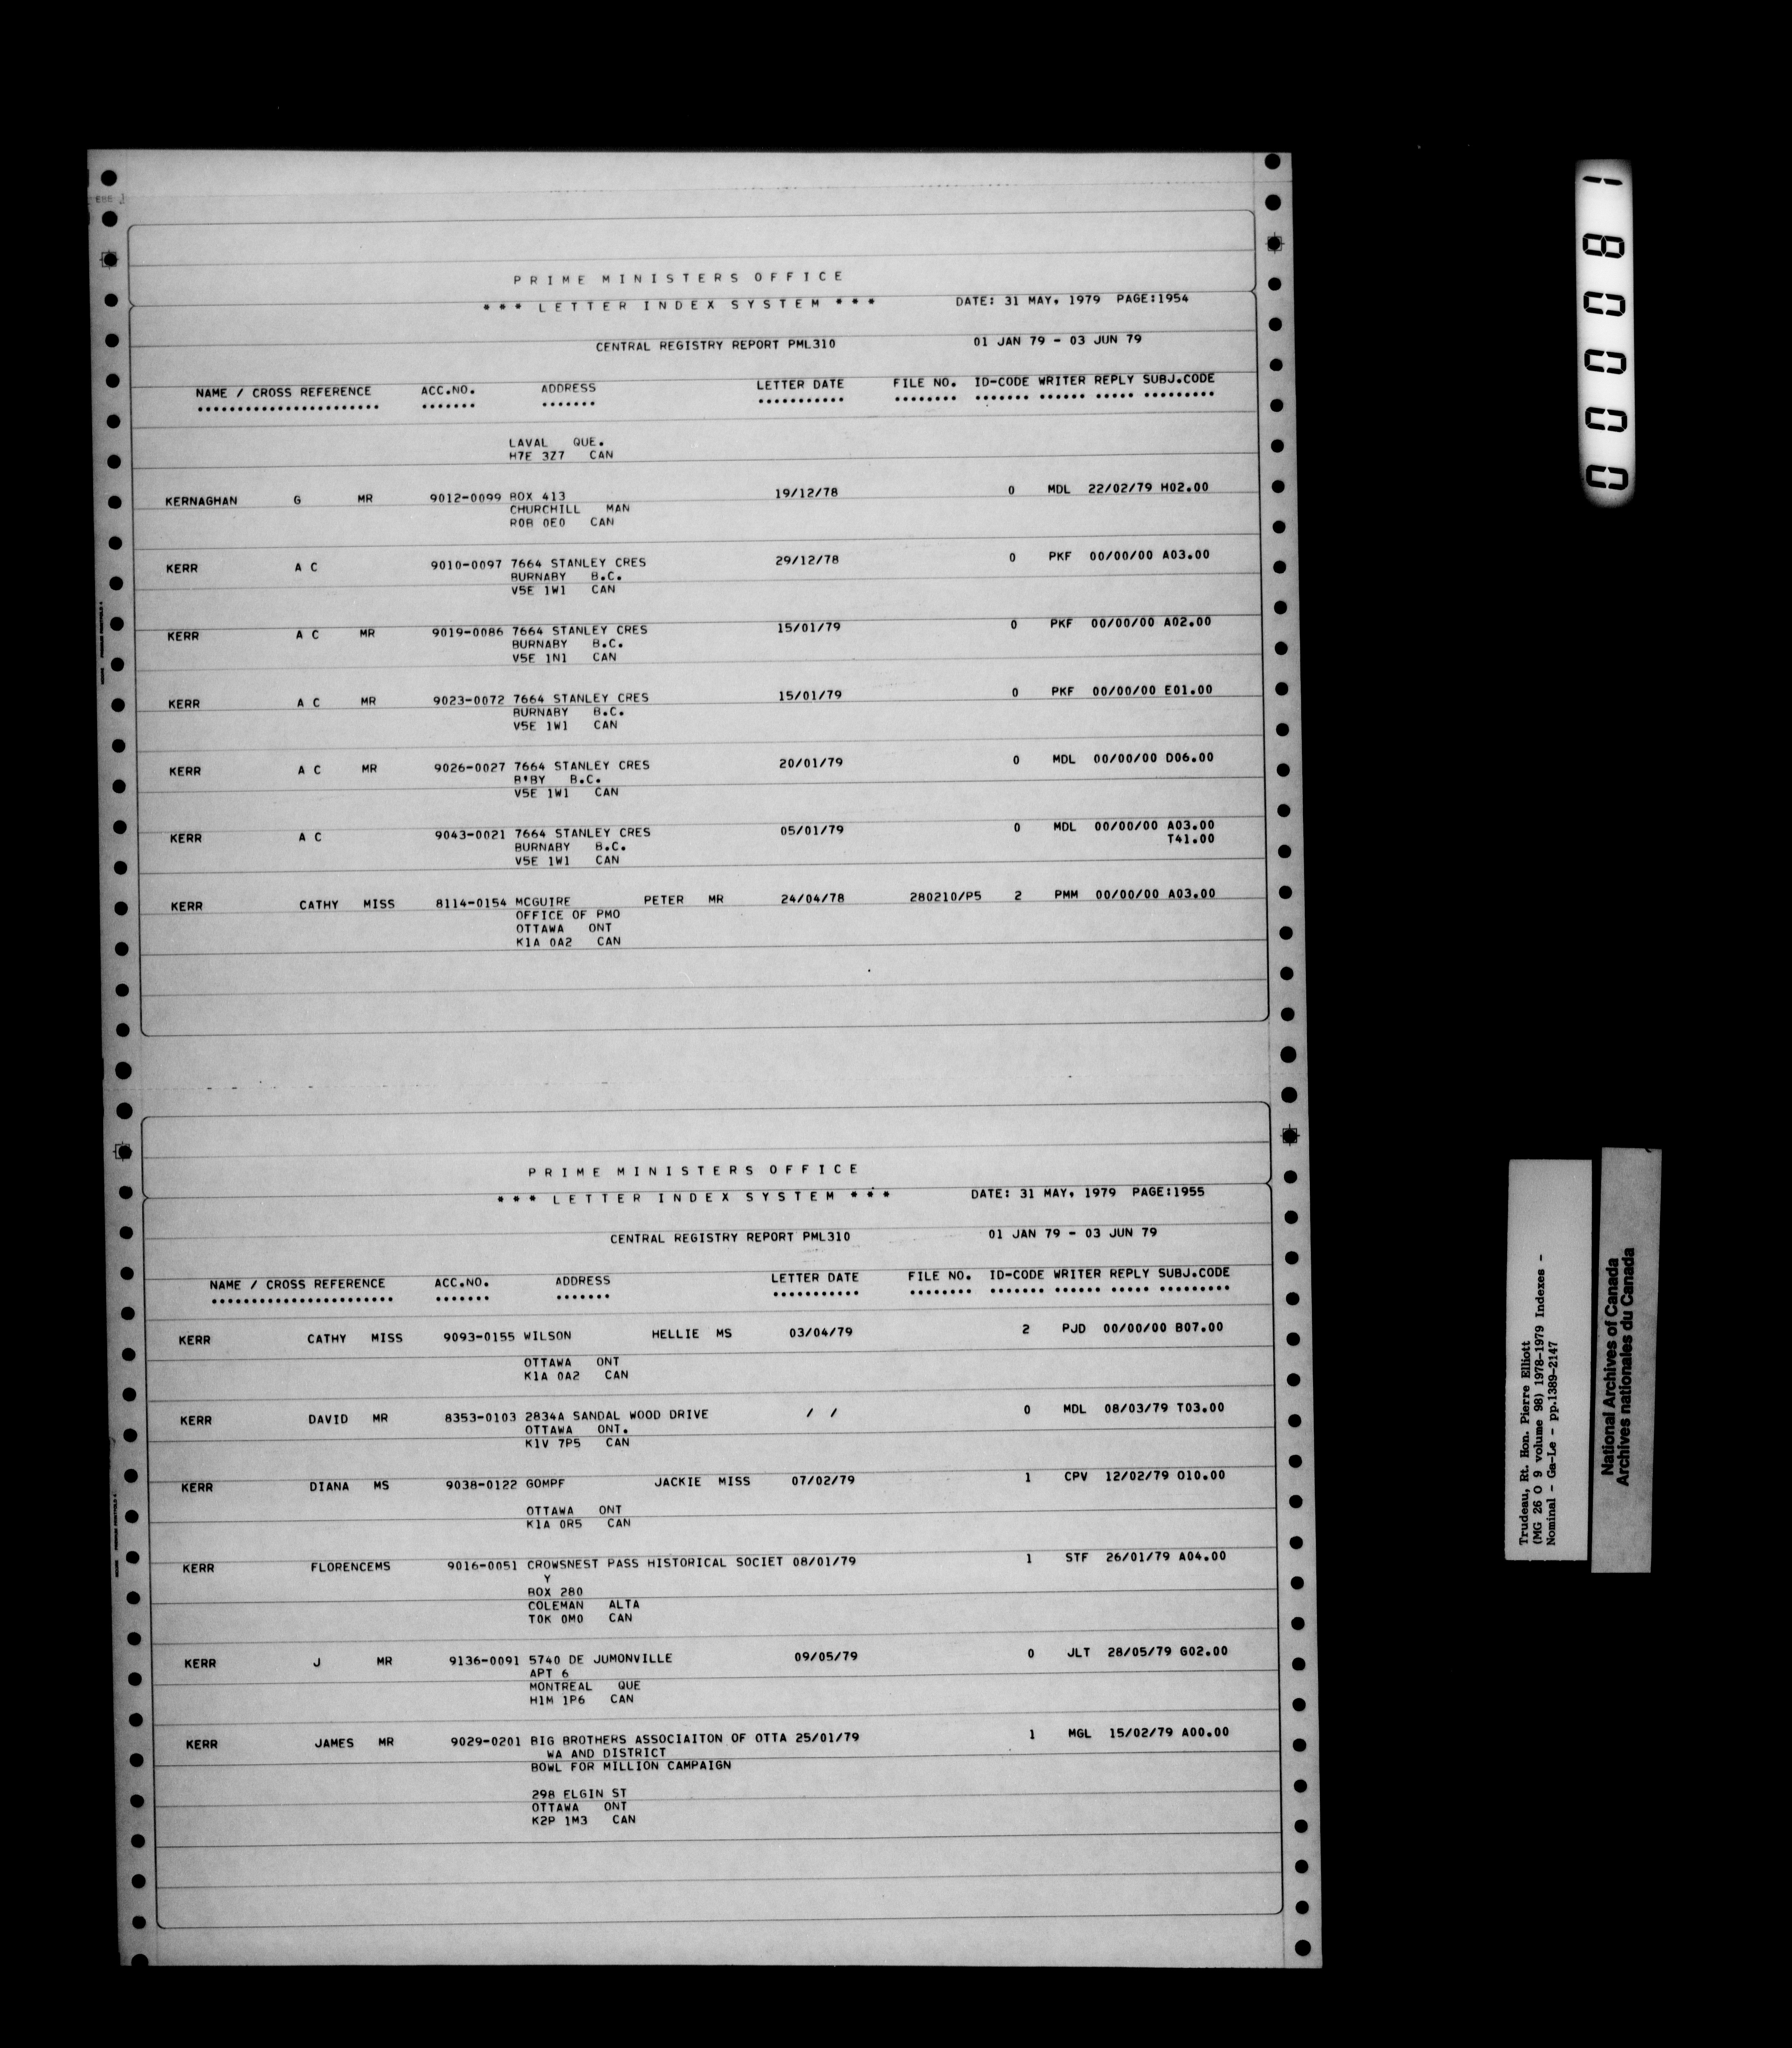 PRIME MINISTERS OFFICE
*** LETTER INDEX SYSTEM *** DATE: 31 MAY, 1979 PAGE:1954
CENTRAL REGISTRY REPORT PML310 01 JAN 79 - 03 JUN 79
NAME / CROSS REFERENCE ACC.NO. ADDRESS LETTER DATE FILE NO. ID-CODE WRITER REPLY SUBJ.CODE
LAVAL QUE.
H7E 3Z7 CAN
KERNAGHAN G MR 9012-0099 BOX 413 19/12/78 0 MDL 22/02/79 H02.00
CHURCHILL MAN
R0B 0E0 CAN
KERR A C 9010-0097 7664 STANLEY CRES 29/12/78 0 PKF 00/00/00 A03.00
BURNABY B.C.
V5E 1W1 CAN
KERR A C MR 9019-0086 7664 STANLEY CRES 15/01/79 0 PKF 00/00/00 A02.00
BURNABY B.C.
V5E 1N1 CAN
KERR A C MR 9023-0072 7664 STANLEY CRES 15/01/79 0 PKF 00/00/00 E01.00
BURNABY B.C.
V5E 1W1 CAN
KERR A C MR 9026-0027 7664 STANLEY CRES 20/01/79 0 MDL 00/00/00 D06.00
B'BY B.C.
V5E 1W1 CAN
KERR A C 9043-0021 7664 STANLEY CRES 05/01/79 0 MDL 00/00/00 A03.00
BURNABY B.C. T41.00
V5E 1W1 CAN
KERR CATHY MISS 8114-0154 MCGUIRE PETER MR 24/04/78 280210/P5 2 PMM 00/00/00 A03.00
OFFICE OF PMO
OTTAWA ONT
K1A 0A2 CAN
PRIME MINISTERS OFFICE
*** LETTER INDEX SYSTEM *** DATE: 31 MAY, 1979 PAGE:1955
CENTRAL REGISTRY REPORT PML310 01 JAN 79 - 03 JUN 79
NAME / CROSS REFERENCE ACC.NO. ADDRESS LETTER DATE FILE NO. ID-CODE WRITER REPLY SUBJ.CODE
KERR CATHY MISS 9093-0155 WILSON HELLIE MS 03/04/79 2 PJD 00/00/00 B07.00
OTTAWA ONT
K1A 0A2 CAN
KERR DAVID MR 8353-0103 2834A SANDAL WOOD DRIVE / / 0 MDL 08/03/79 T03.00
OTTAWA ONT.
K1V 7P5 CAN
KERR DIANA MS 9038-0122 GOMPF JACKIE MISS 07/02/79 1 CPV 12/02/79 O10.00
OTTAWA ONT
K1A 0R5 CAN
KERR FLORENCEMS 9016-0051 CROWSNEST PASS HISTORICAL SOCIET 08/01/79 1 STF 26/01/79 A04.00
Y
BOX 280
COLEMAN ALTA
T0K 0M0 CAN
KERR J MR 9136-0091 5740 DE JUMONVILLE 09/05/79 0 JLT 28/05/79 G02.00
APT 6
MONTREAL QUE
H1M 1P6 CAN
KERR JAMES MR 9029-0201 BIG BROTHERS ASSOCIAITON OF OTTA 25/01/79 1 MGL 15/02/79 A00.00
WA AND DISTRICT
BOWL FOR MILLION CAMPAIGN
298 ELGIN ST
OTTAWA ONT
K2P 1M3 CAN
000081
Trudeau, Rt. Hon. Pierre Elliott
(MG 26 O 9 volume 98) 1978-1979 Indexes -
Nominal - Ga-Le - pp.1389-2147
National Archives of Canada
Archives nationales du Canada